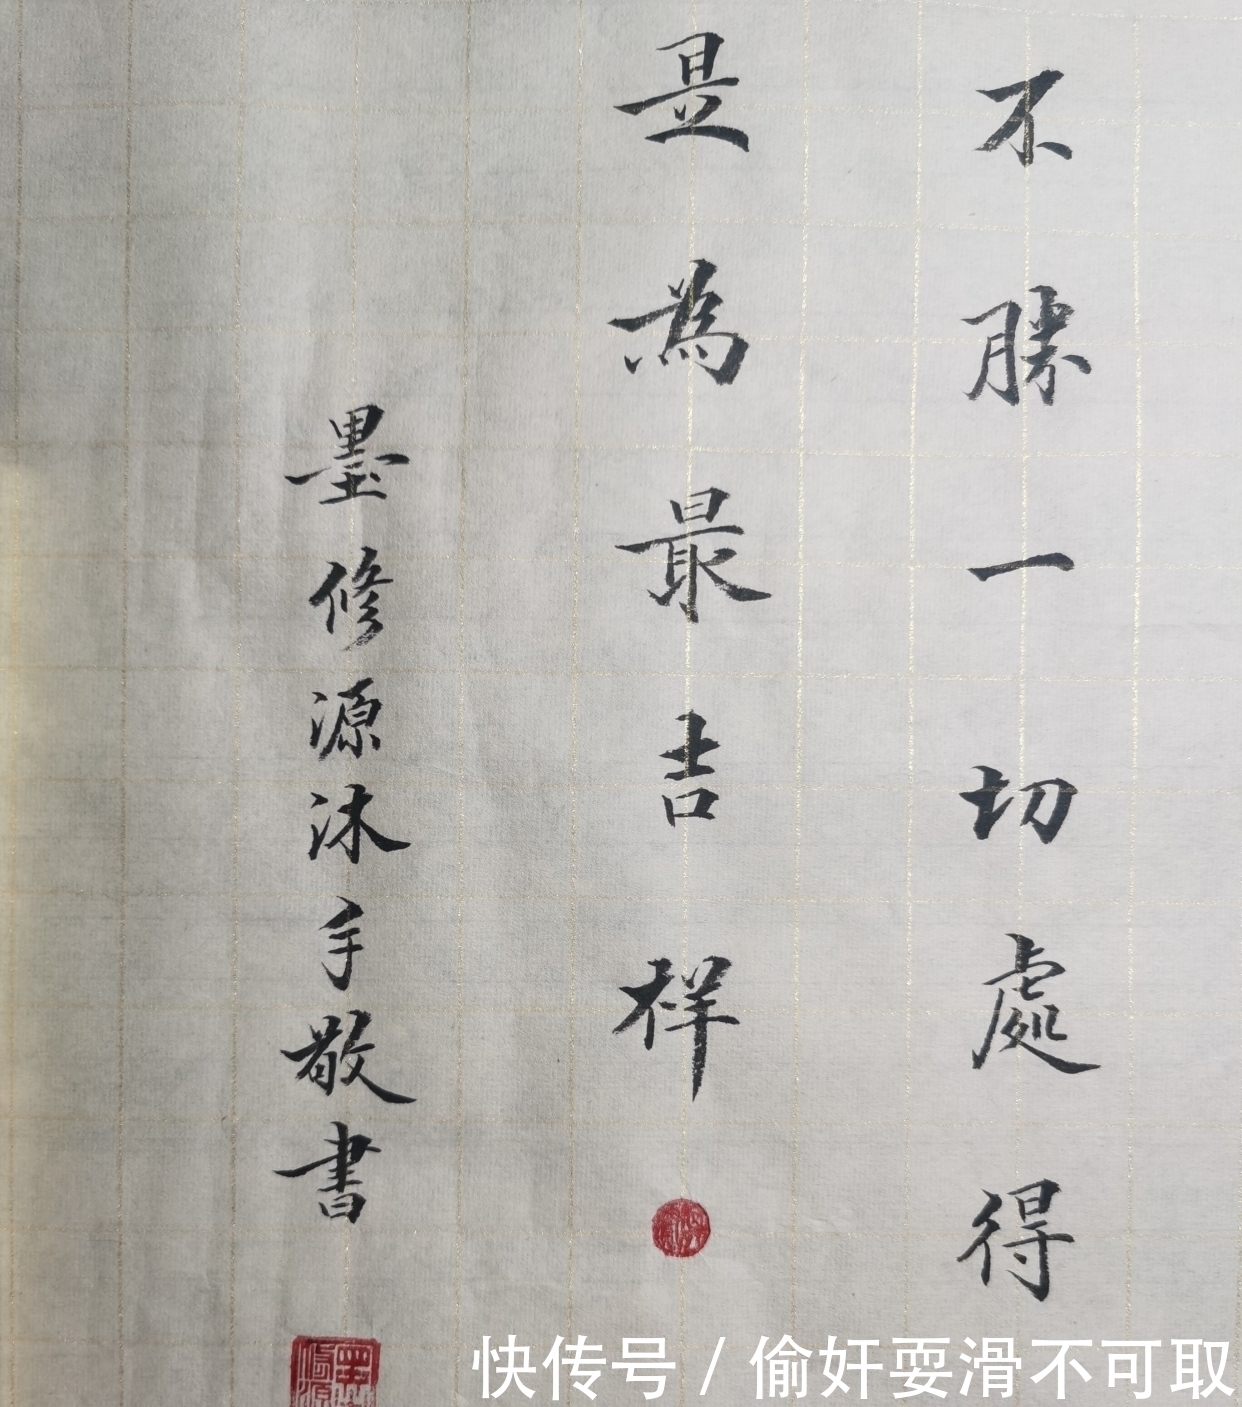 不勝一切處得
是為最吉祥
墨修源沐手敬書
墨修源
快传号 / 偷奸耍滑不可取